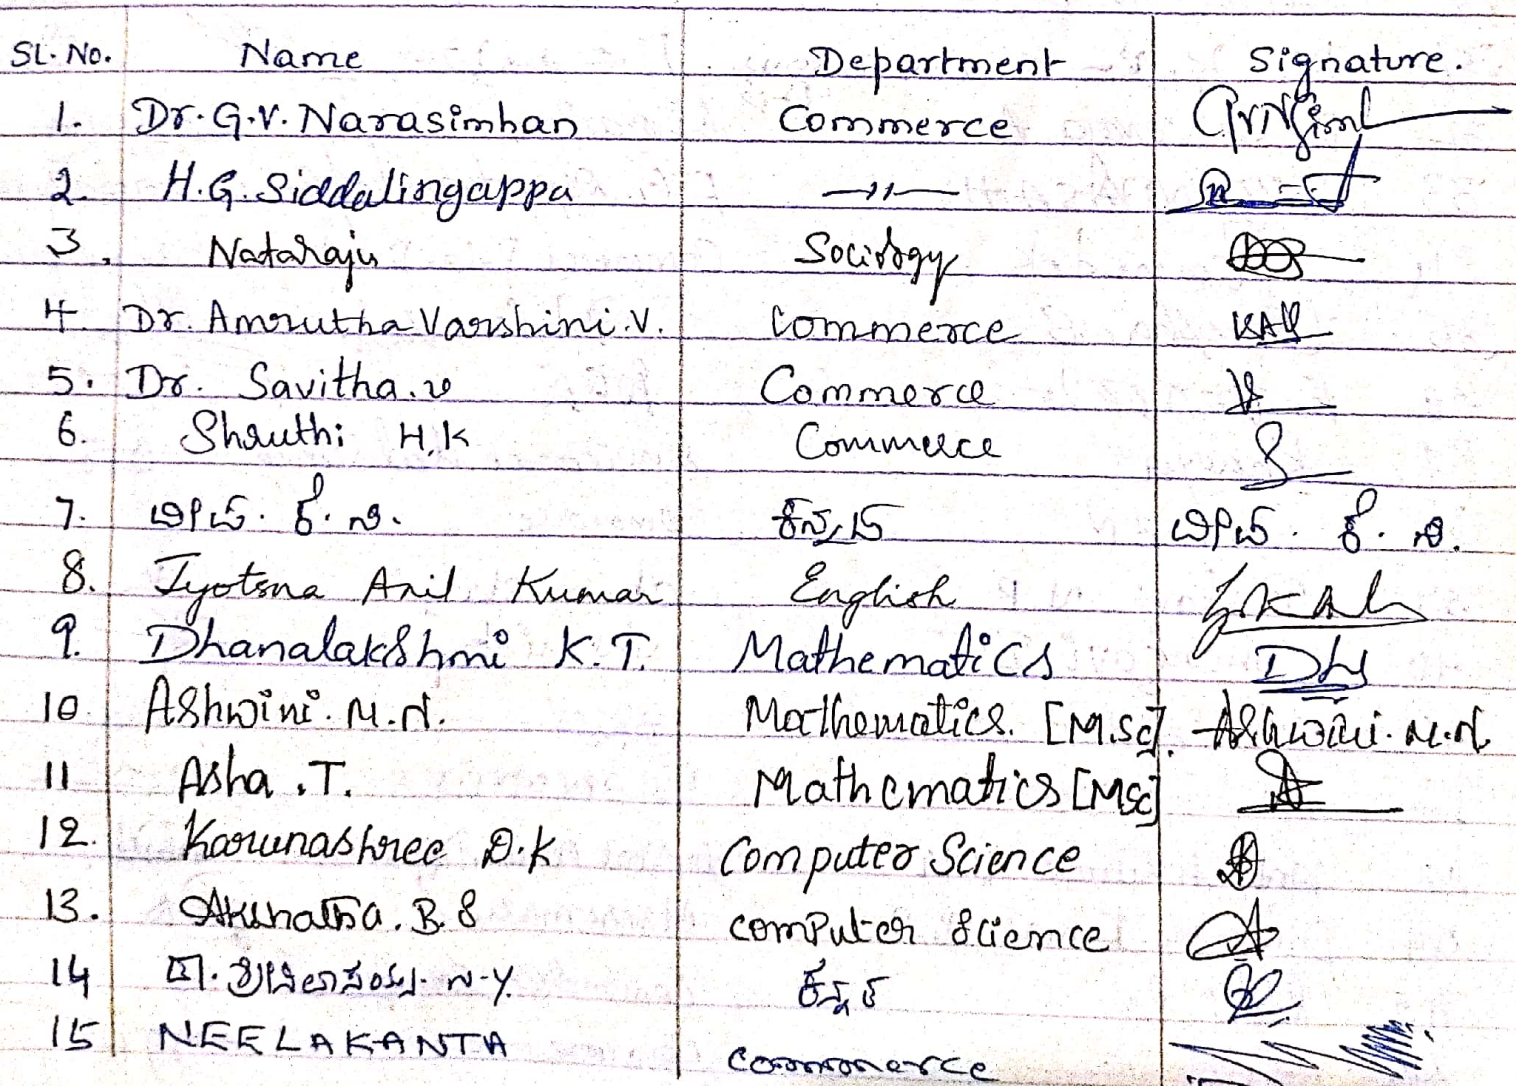 SL. No. Name Department Signature.
1. Dr. G.V. Narasimhan Commerce
2. H.G. Siddalingappa —〃—
3. Nataraju Sociology
4. Dr. Amrutha Varshini. V. Commerce KAV
5. Dr. Savitha. v Commerce
6. Shruthi H.K Commerce
7. ಕನ್ನಡ
8. Jyotsna Anil Kumar English
9. Dhanalakshmi K.T. Mathematics
10 Ashwini. M.N. Mathematics. [M.Sc]. Ashwini. M.N.
11 Asha .T. Mathematics [MSc]
12. Karunashree D.K Computer Science
13. Akshatha. B.S computer science
14 ಡಾ. ಶ್ರೀನಿವಾಸಯ್ಯ. ಕನ್ನಡ
15 NEELAKANTA Commerce